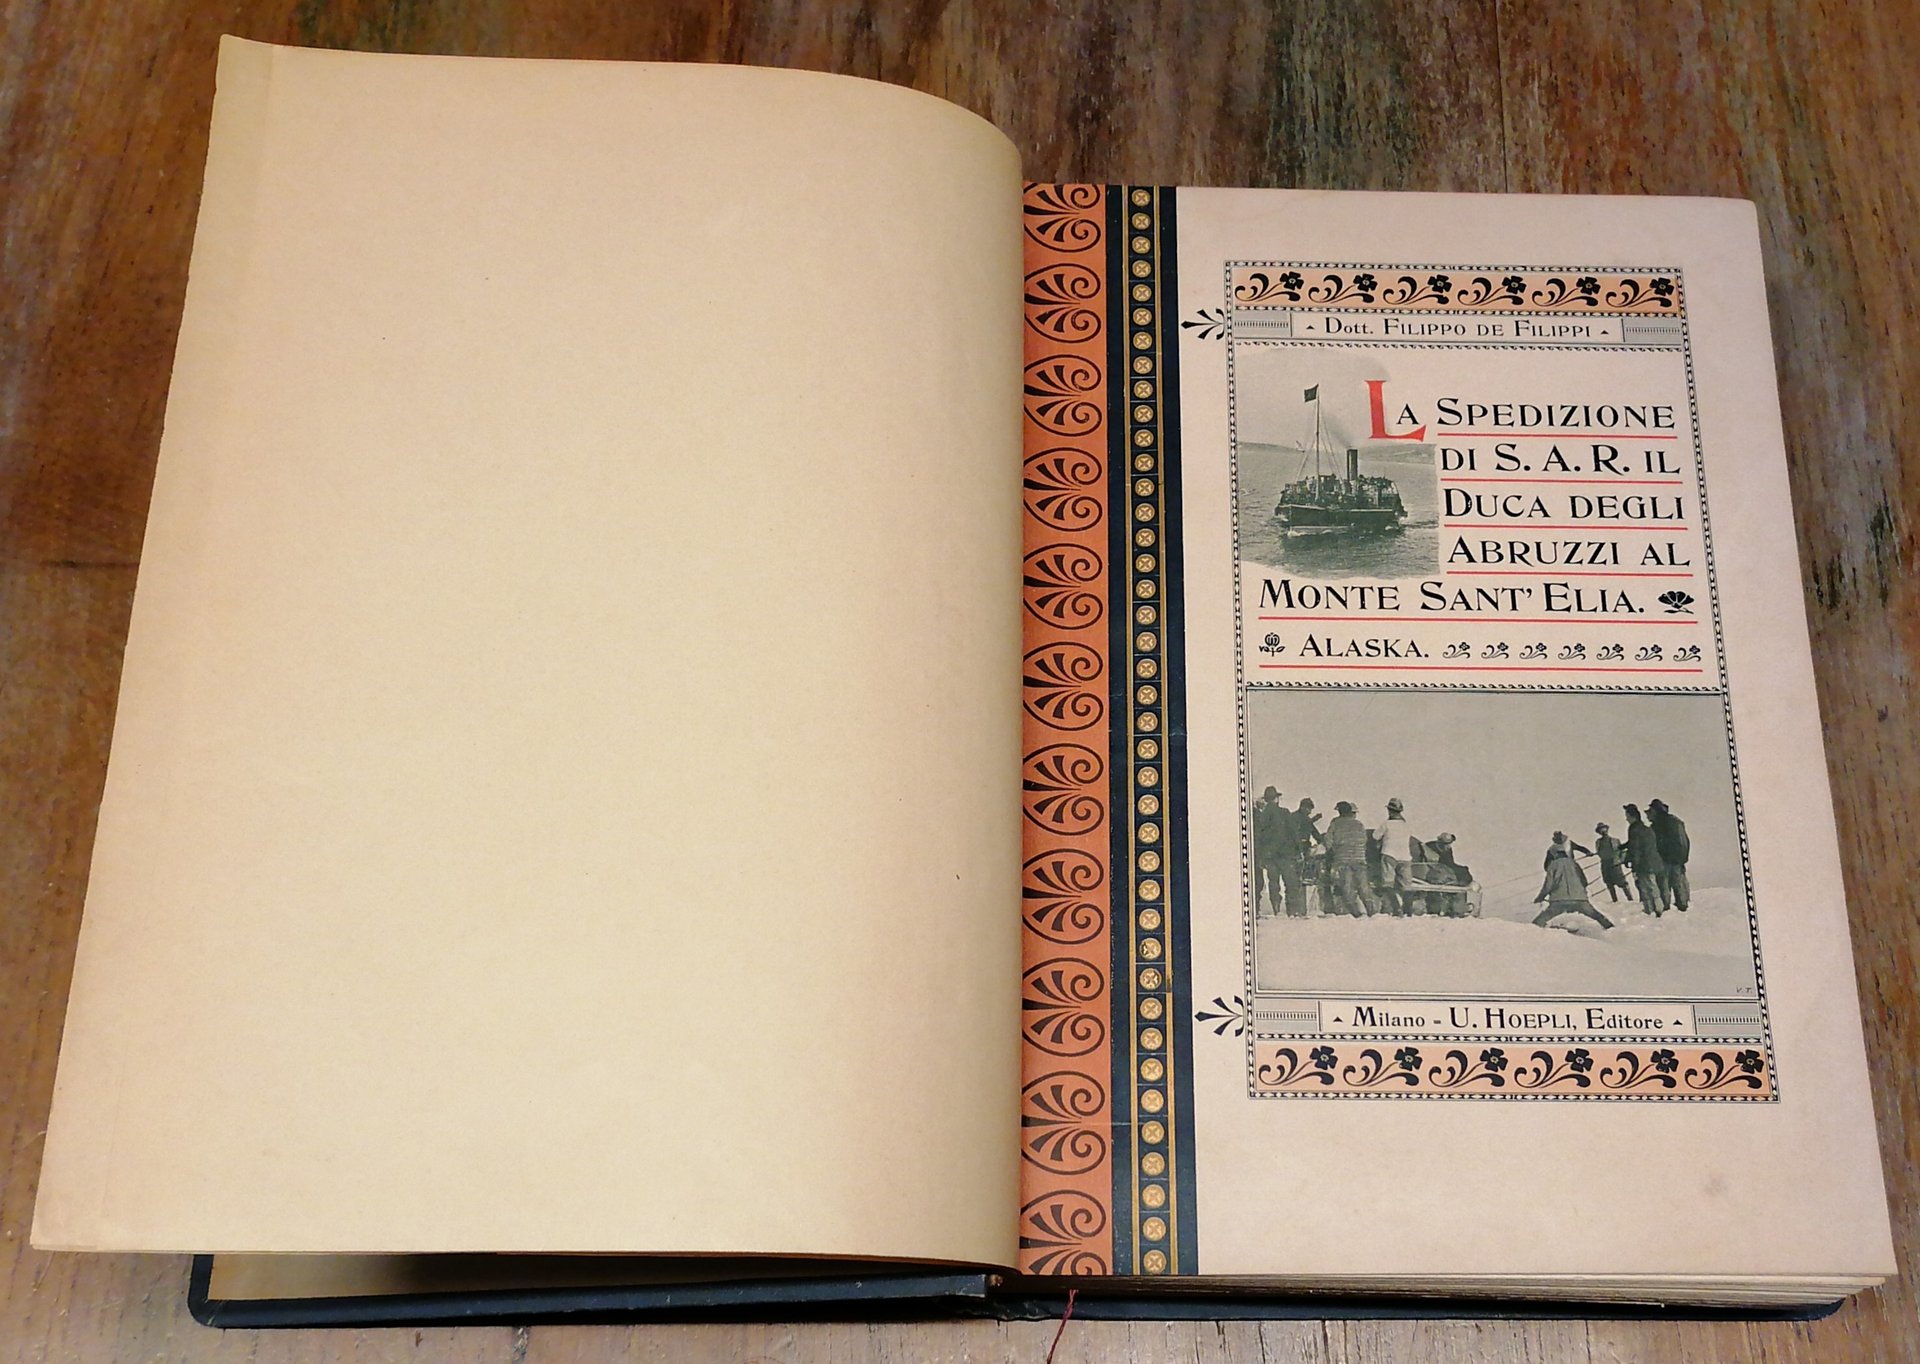 Dott. FILIPPO DE FILIPPI
LA SPEDIZIONE
DI S. A. R. IL
DUCA DEGLI
ABRUZZI AL
MONTE SANT' ELIA.
ALASKA.
V. T.
Milano - U. HOEPLI, Editore